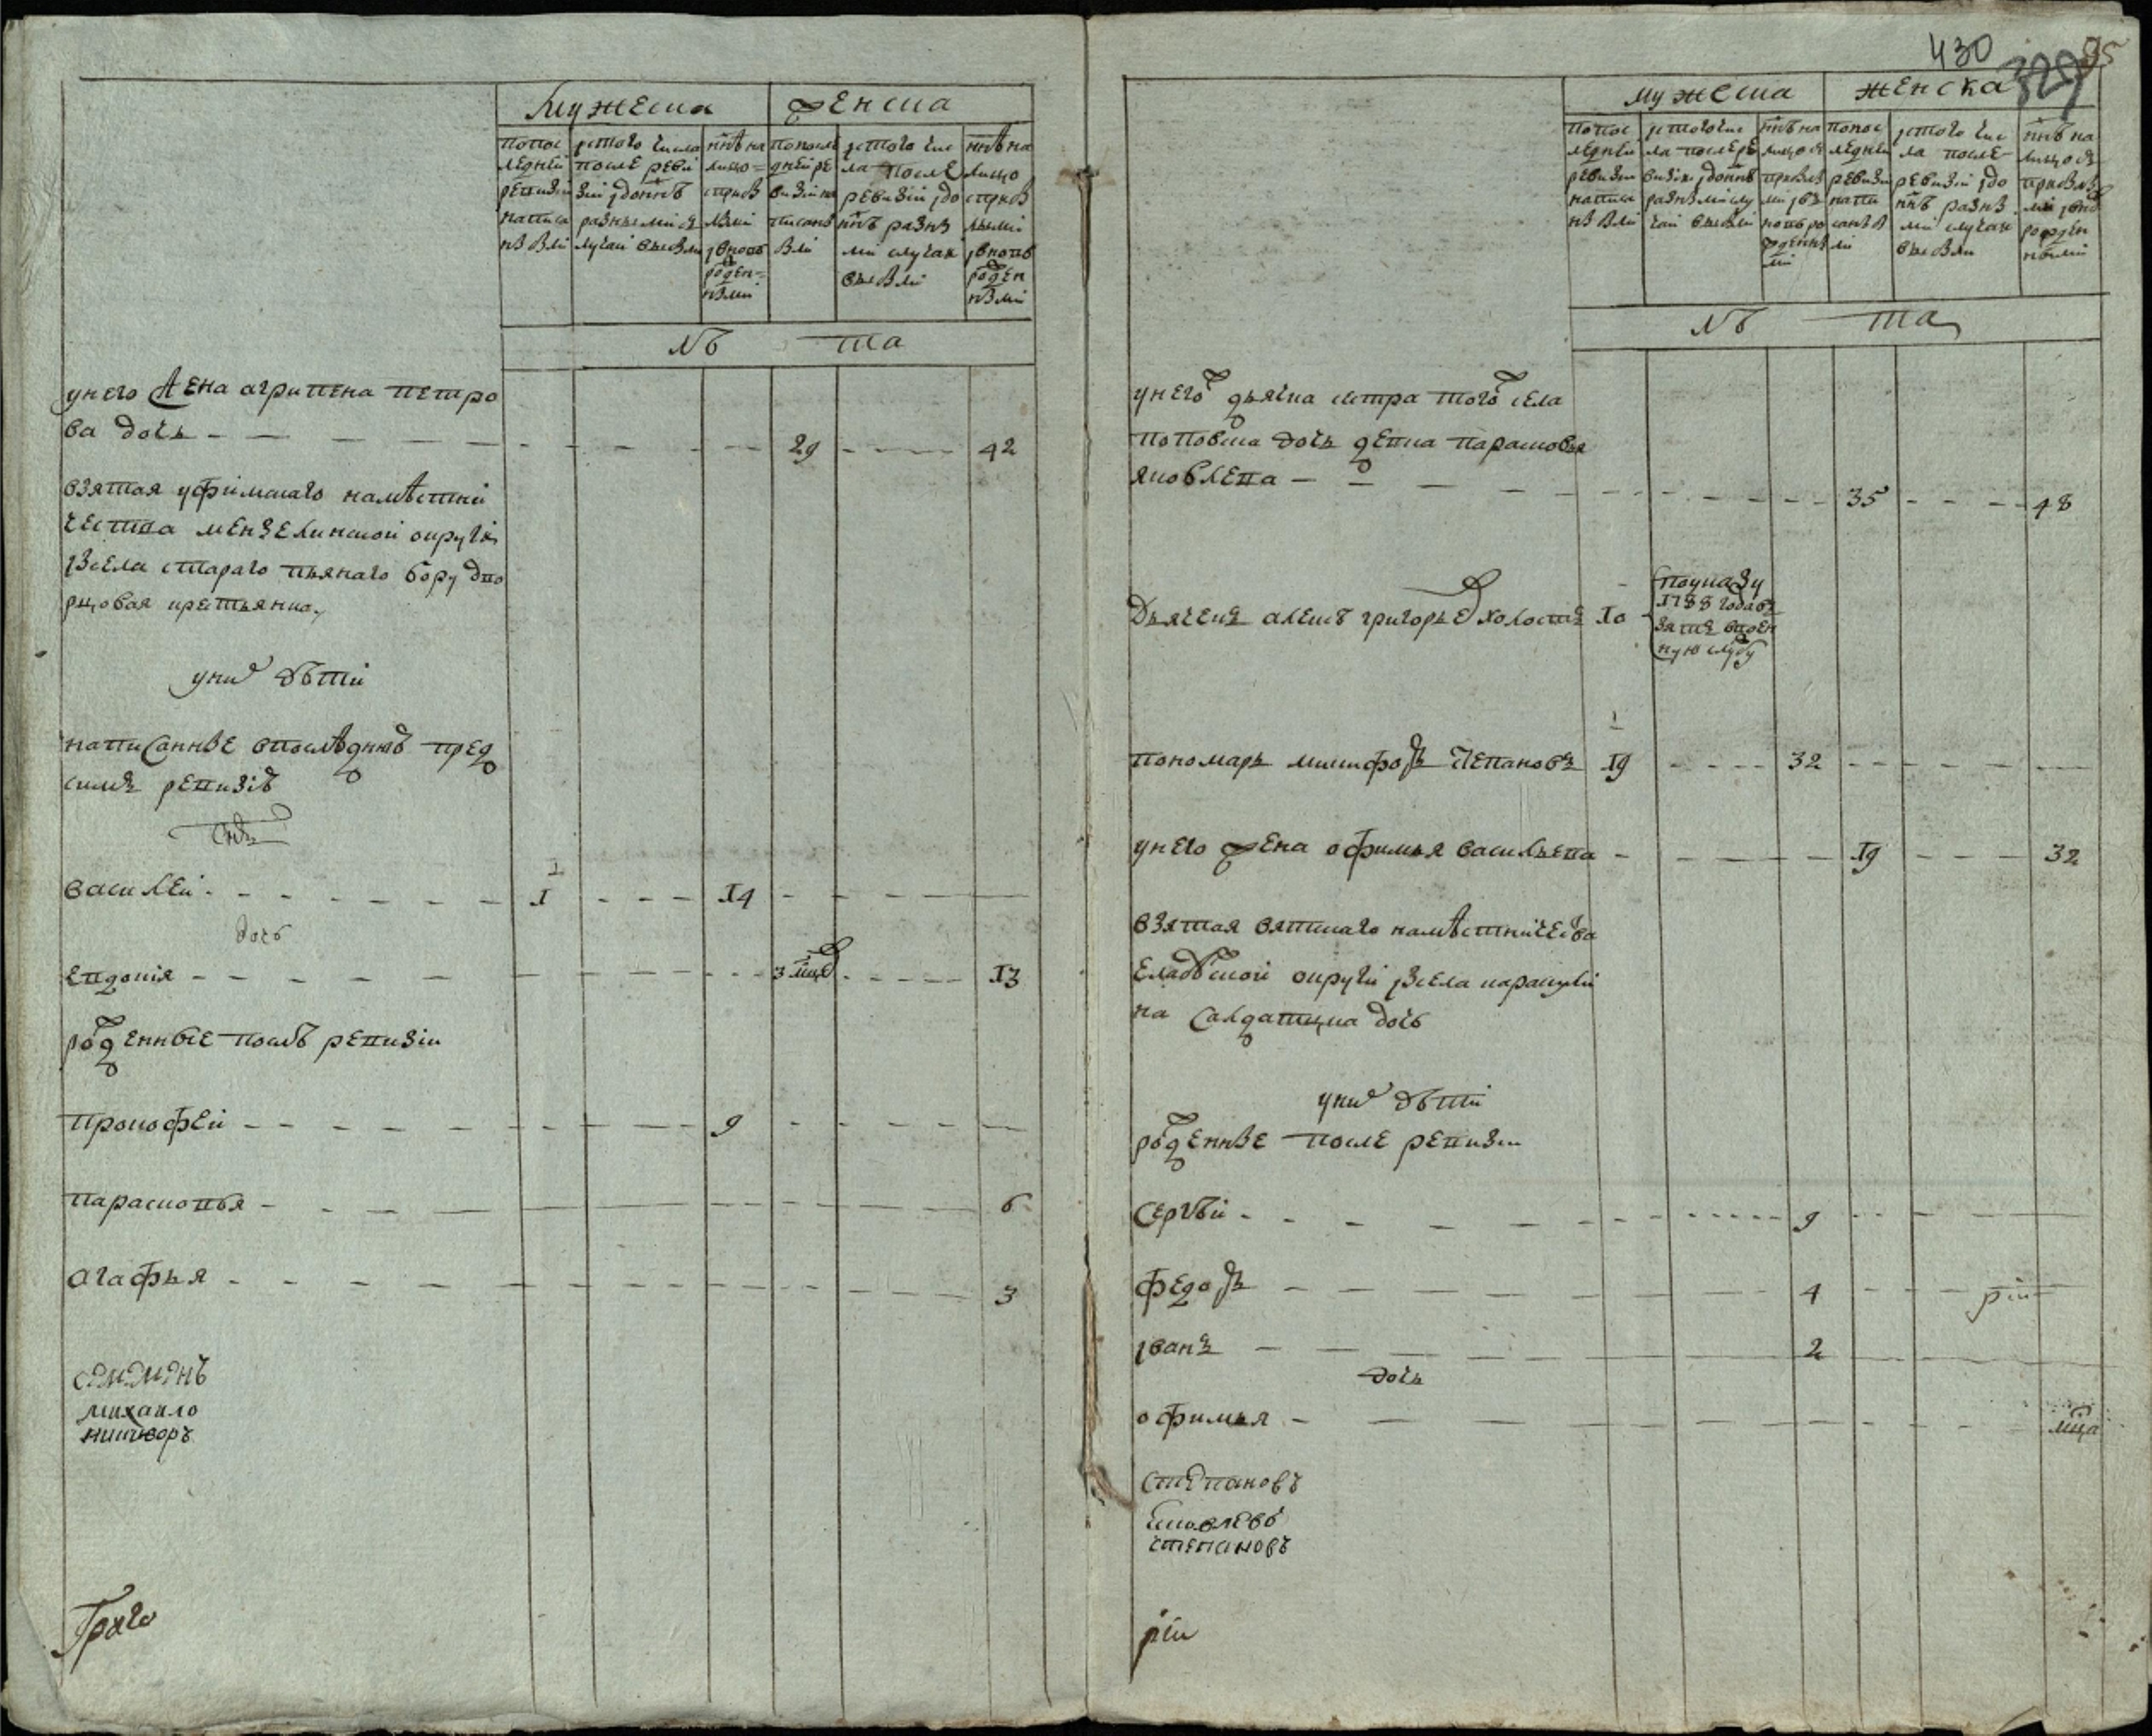 Мужеска
Женска
попос
ледней
ревизіи
написа
нныхъ
истого числа
после реви
зіи и доныне
разными
случаи выбыли
ныне на
лицо
ново
рожден
ными
попосле
дней ре
визіи на
писаны
истого чис
ла после
ревизіи и до
ныне разны
ми случаи
выбыли
ныне на
лицо
вновь
рожден
ными
лѣ та
унего жена агрипена петро
ва дочь 29 42
взятая уфимскаго намѣстни
чества мензелинской округи
изсела стараго пьянаго бору дво
рцовая крестьянка
уних дѣти
написанные впоследнюю пред
симъ ревизію
снъ
василей 1 14
дочь
евдокія 3 мцъ 13
рожденные послѣ ревизіи
прокофей 9
парасковья 6
агафья 3
семенъ
михаило
никифоръ
Граго
430
329
95
мужеска
женска
попос
ледней
ревизіи
написа
истого чис
ла после ре
визіи и доныне
разными слу
чаи выбыли
ныне на
лицо съ
прибылы
ми и въ
новь ро
жденны
ми
попос
ледней
ревизіи
напи
саны
истого чис
ла после
ревизіи и до
ныне разны
ми случаи
выбыли
ныне на
лицо съ
прибылы
ми и внов
рожден
ными
лѣ та
унего дьячка сестра того села
поповска дочь девка парасковья
яковлева 35 48
Дьячекъ алексѣ григорьевъ холостъ 10
поуказу
1788 года въ
зятъ ввоен
ную службу
пономарь никифоръ степановъ 19 32
унего жена офимья васильева 19 32
взятая вятскаго намѣстничества
елабужской округи изсела каракули
на салдатцка дочь
уних дѣти
рожденные после ревизіи
Сергѣй 9
федоръ 4
иванъ 2
дочь
офимья мца
Степановъ
Яковлевъ
степановъ
ріи